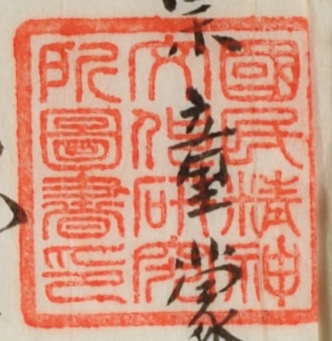 國民精神
文化研究
所圖書印
童蒙